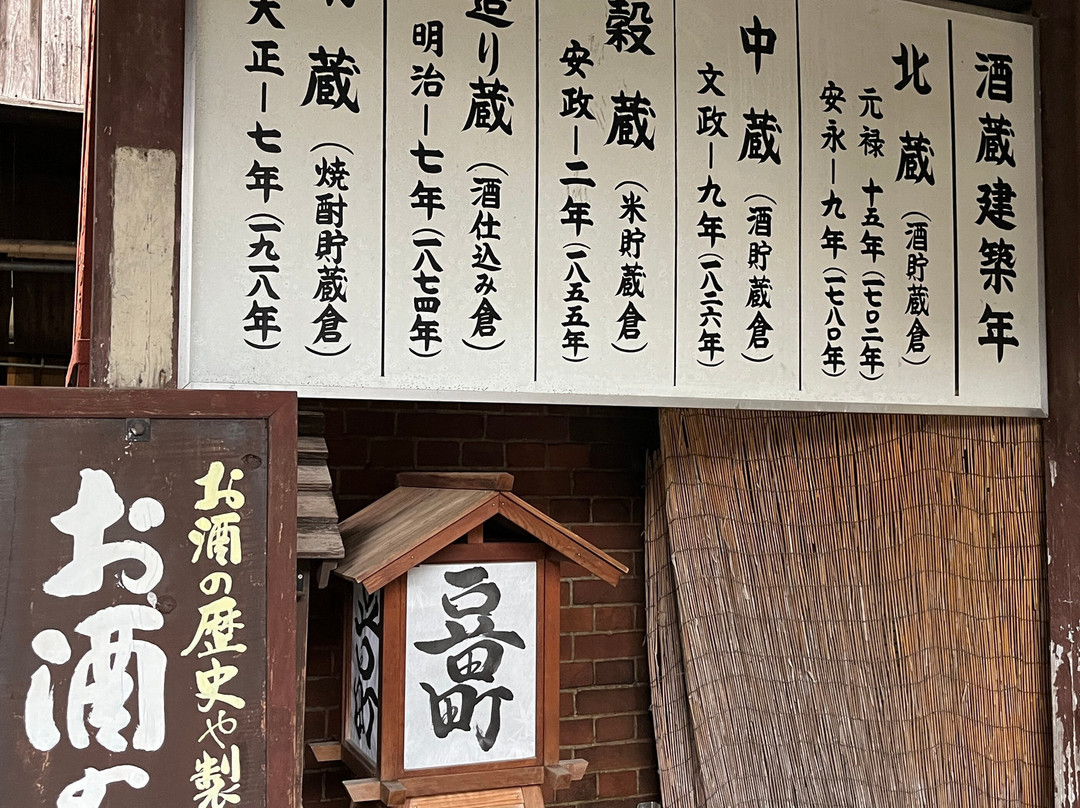 酒蔵建築年
北蔵(酒貯蔵倉)
元禄 十五年(一七〇二年)
安永ー九年(一七八〇年)
中蔵(酒貯蔵倉)
文政ー九年(一八二六年)
穀蔵(米貯蔵倉)
安政ー二年(一八五五年)
造り蔵(酒仕込み倉)
明治ー七年(一八七四年)
蔵(焼酎貯蔵倉)
大正ー七年(一九一八年)
豆田町
お酒の歴史や製
お酒の